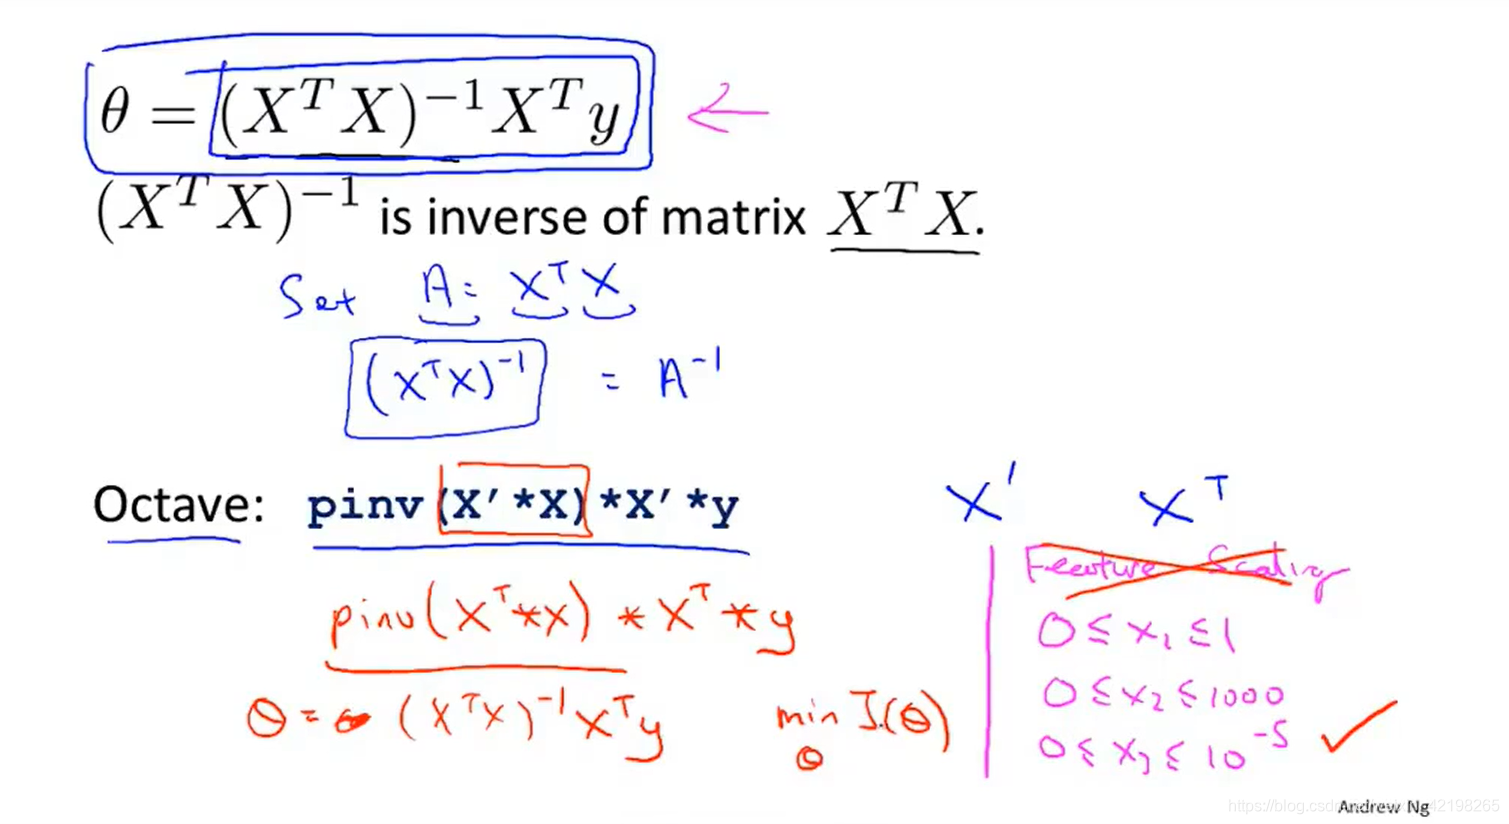 θ = (X^T X)^{-1} X^T y ←
(X^T X)^{-1} is inverse of matrix X^T X.
Set A = X^T X
(X^T X)^{-1} = A^{-1}
Octave: pinv(X'*X)*X'*y
X' X^T
pinv(X^T*X) * X^T * y
θ = (X^T X)^{-1} X^T y
min J(θ)
θ
Feature Scaling
0 ≤ x₁ ≤ 1
0 ≤ x₂ ≤ 1000
0 ≤ x₃ ≤ 10^{-5} ✓
Andrew Ng